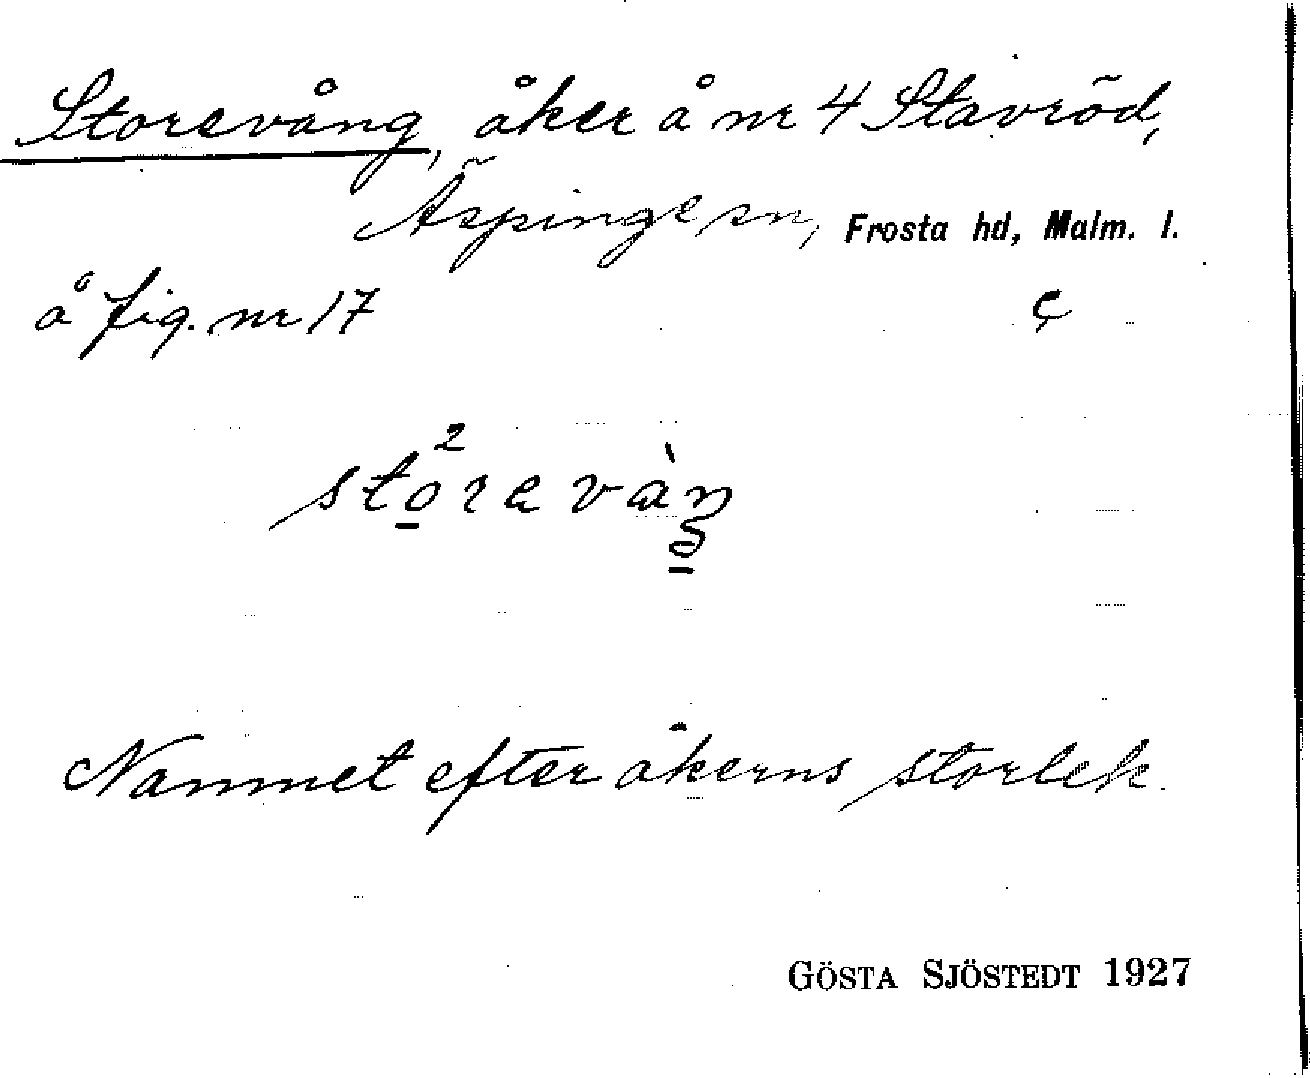 Storevång, åker å nr 4 Stavröd,
Äspinge sn, Frosta hd, Malm. l.
å fig. nr 17
Namnet efter åkerns storlek.
GÖSTA SJÖSTEDT 1927